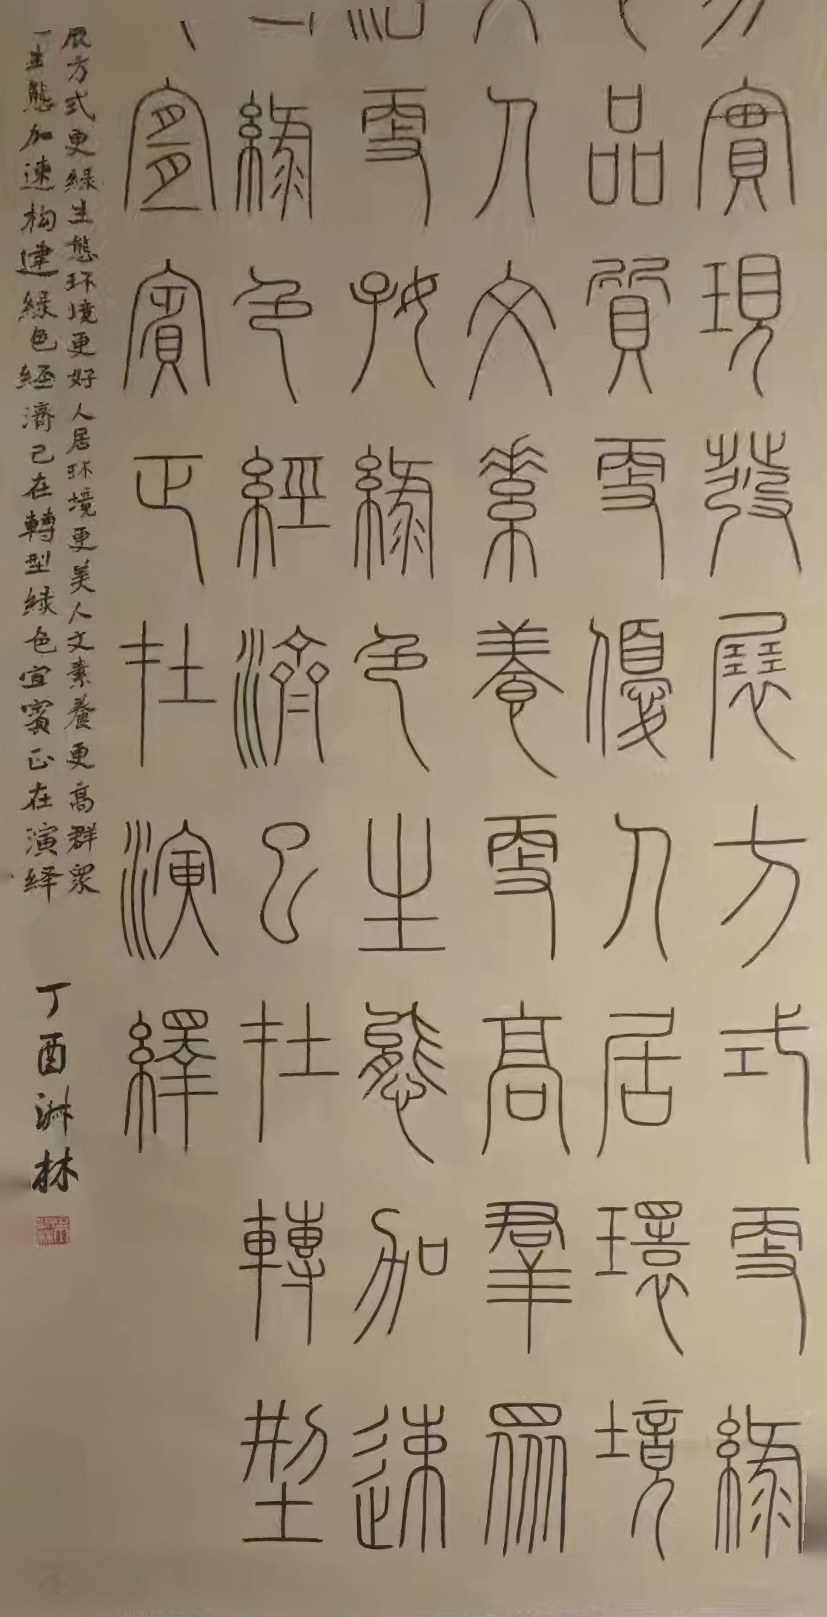 實現發展方式更綠
品質更優人居環境
人文素養更高羣眾
更好綠色生態加速
綠色經濟已在轉型
宜賓正在演繹
展方式更綠生態环境更好人居环境更美人文素養更高群眾
生態加速构建綠色經濟已在轉型綠色宜賓正在演繹
丁酉淋林